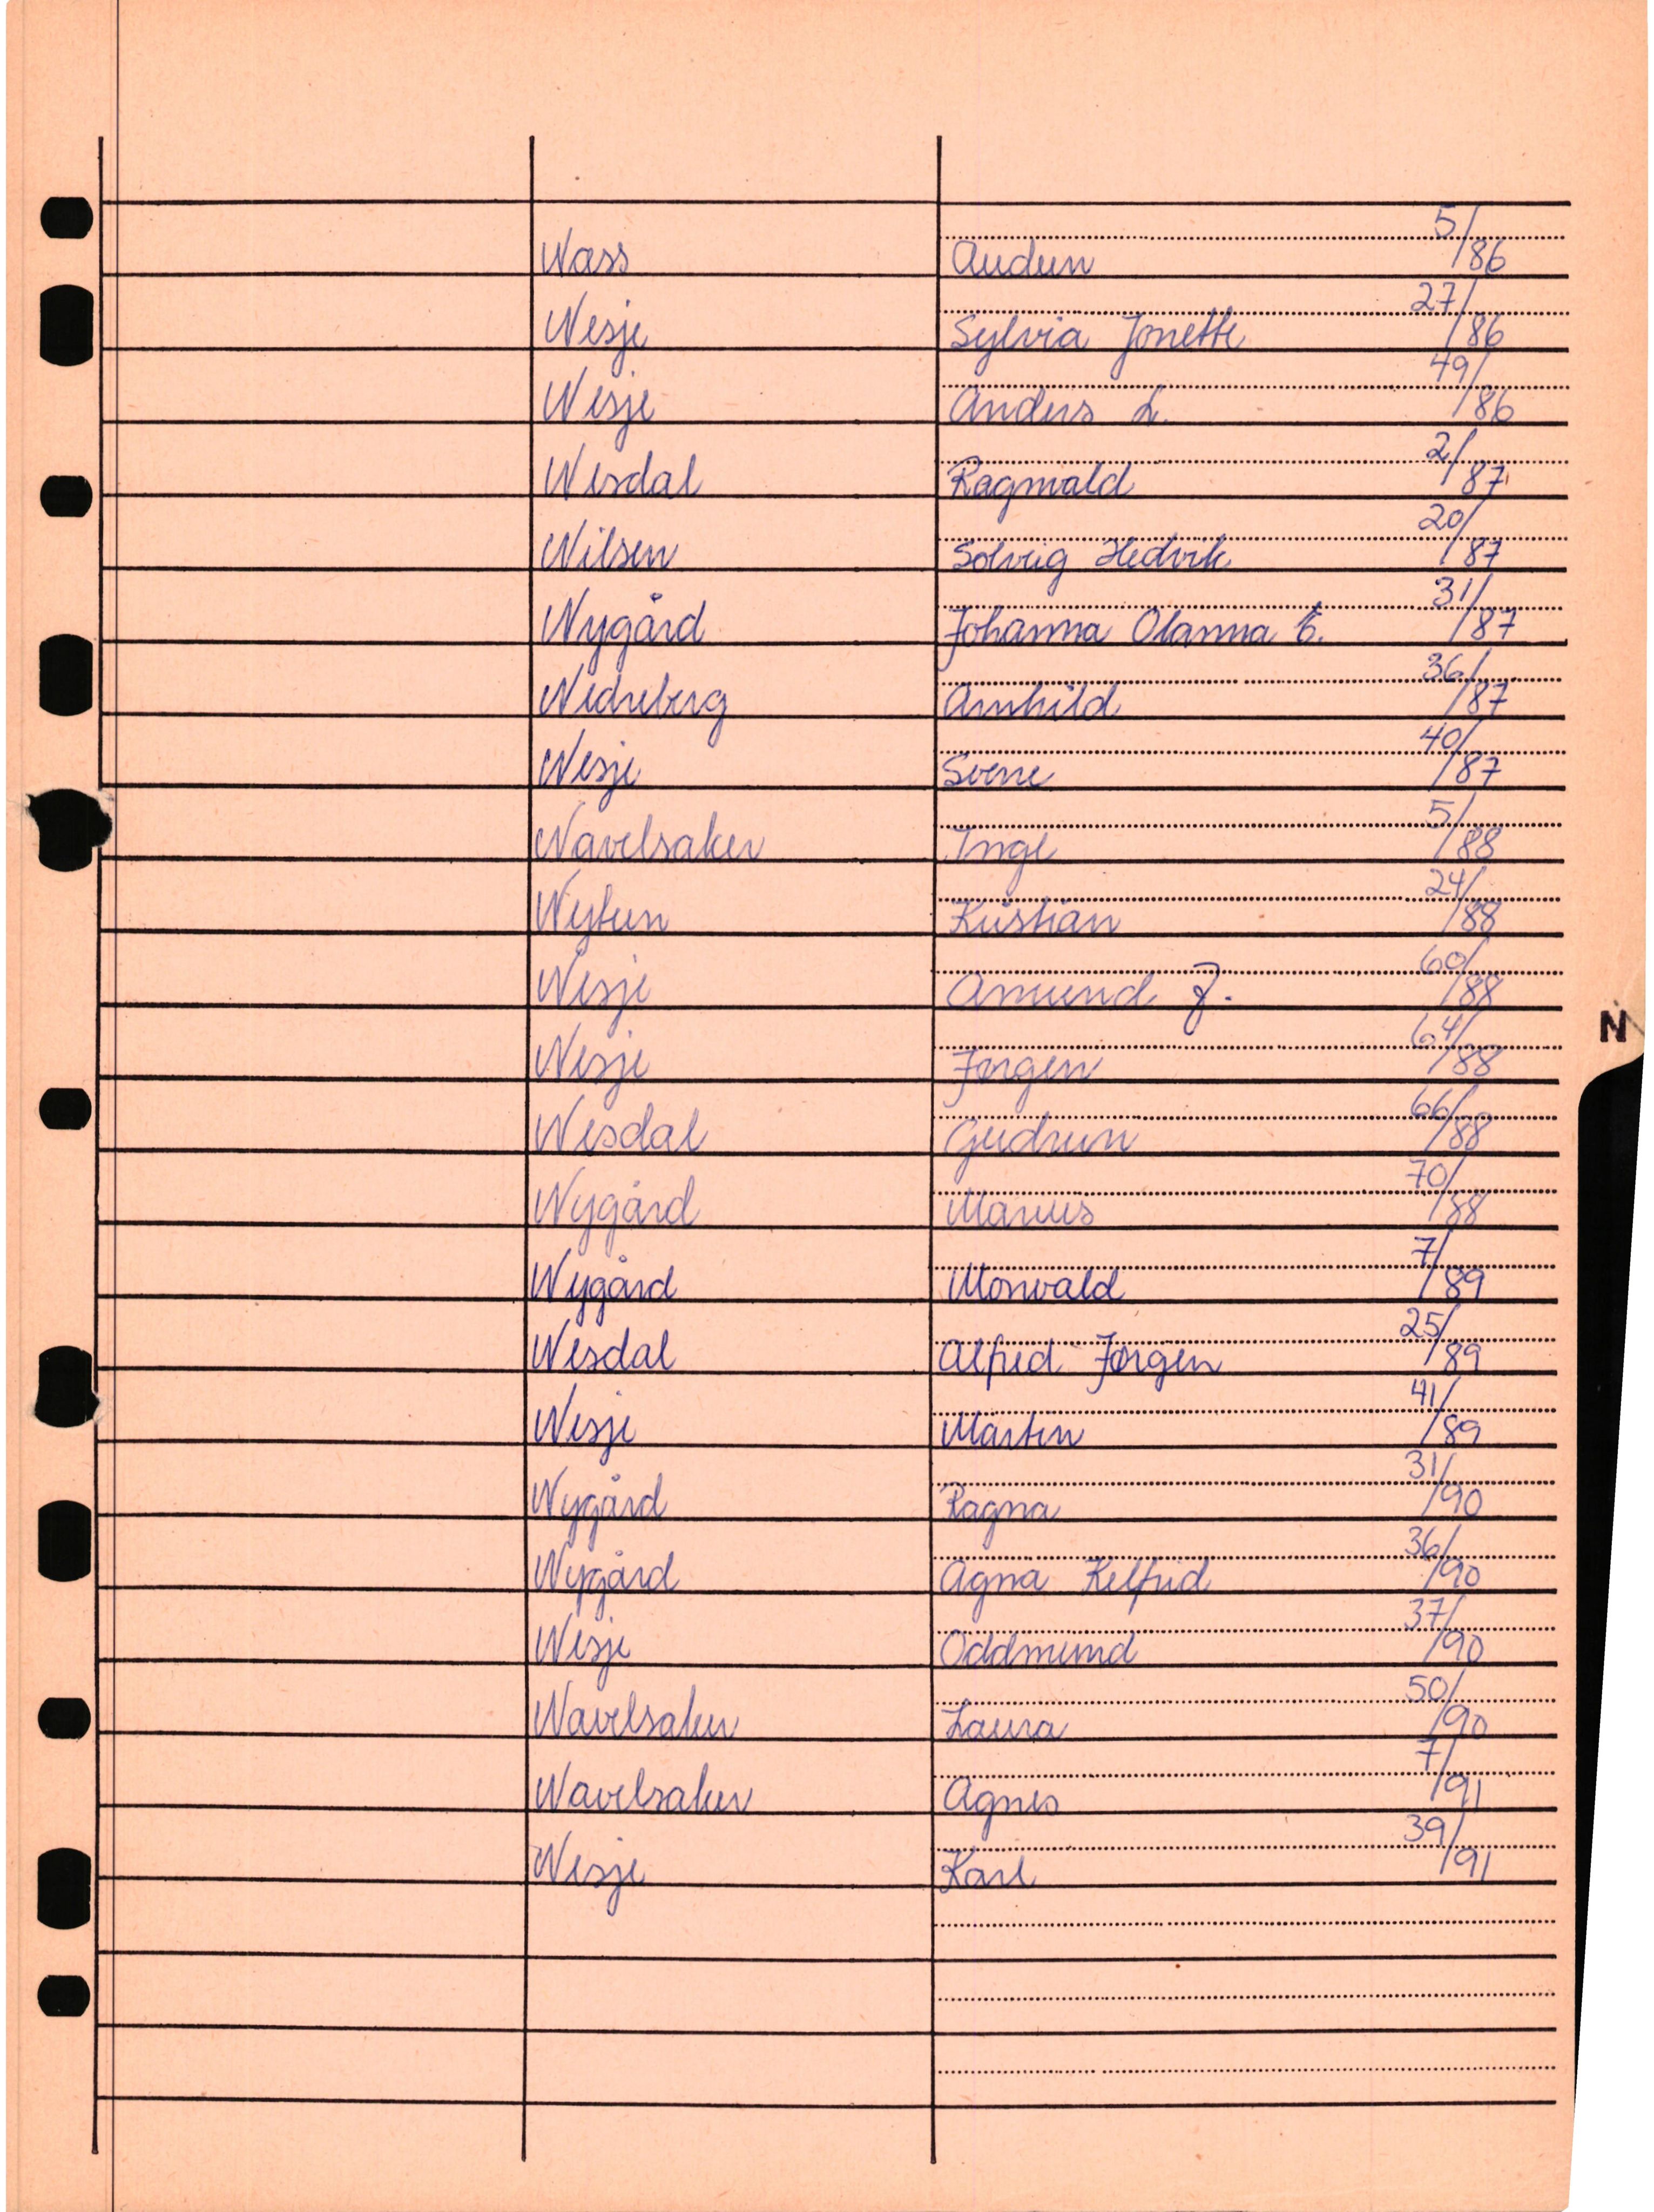 Næss Audun 5/86
Nesje Sylvia Jonette 27/86
Nesje Anders L. 49/86
Nesdal Ragnvald 2/87
Nilsen Solveig Hedvik 20/87
Nygård Johanna Olanna E. 31/87
Nedreberg Arnhild 36/87
Nesje Sverre 40/87
Navelsaker Inge 5/88
Nytun Kristian 24/88
Nesje Amund J. 60/88
Nesje Jørgen 64/88
Nesdal Gudrun 66/88
Nygård Marius 70/88
Nygård Monvald 7/89
Nesdal Alfred Jørgen 25/89
Nesje Martin 41/89
Nygård Ragna 31/90
Nygård Agna Kelfrid 36/90
Nesje Oddmund 37/90
Navelsaker Laura 50/90
Navelsaker Agnes 7/91
Nesje Karl 39/91
N